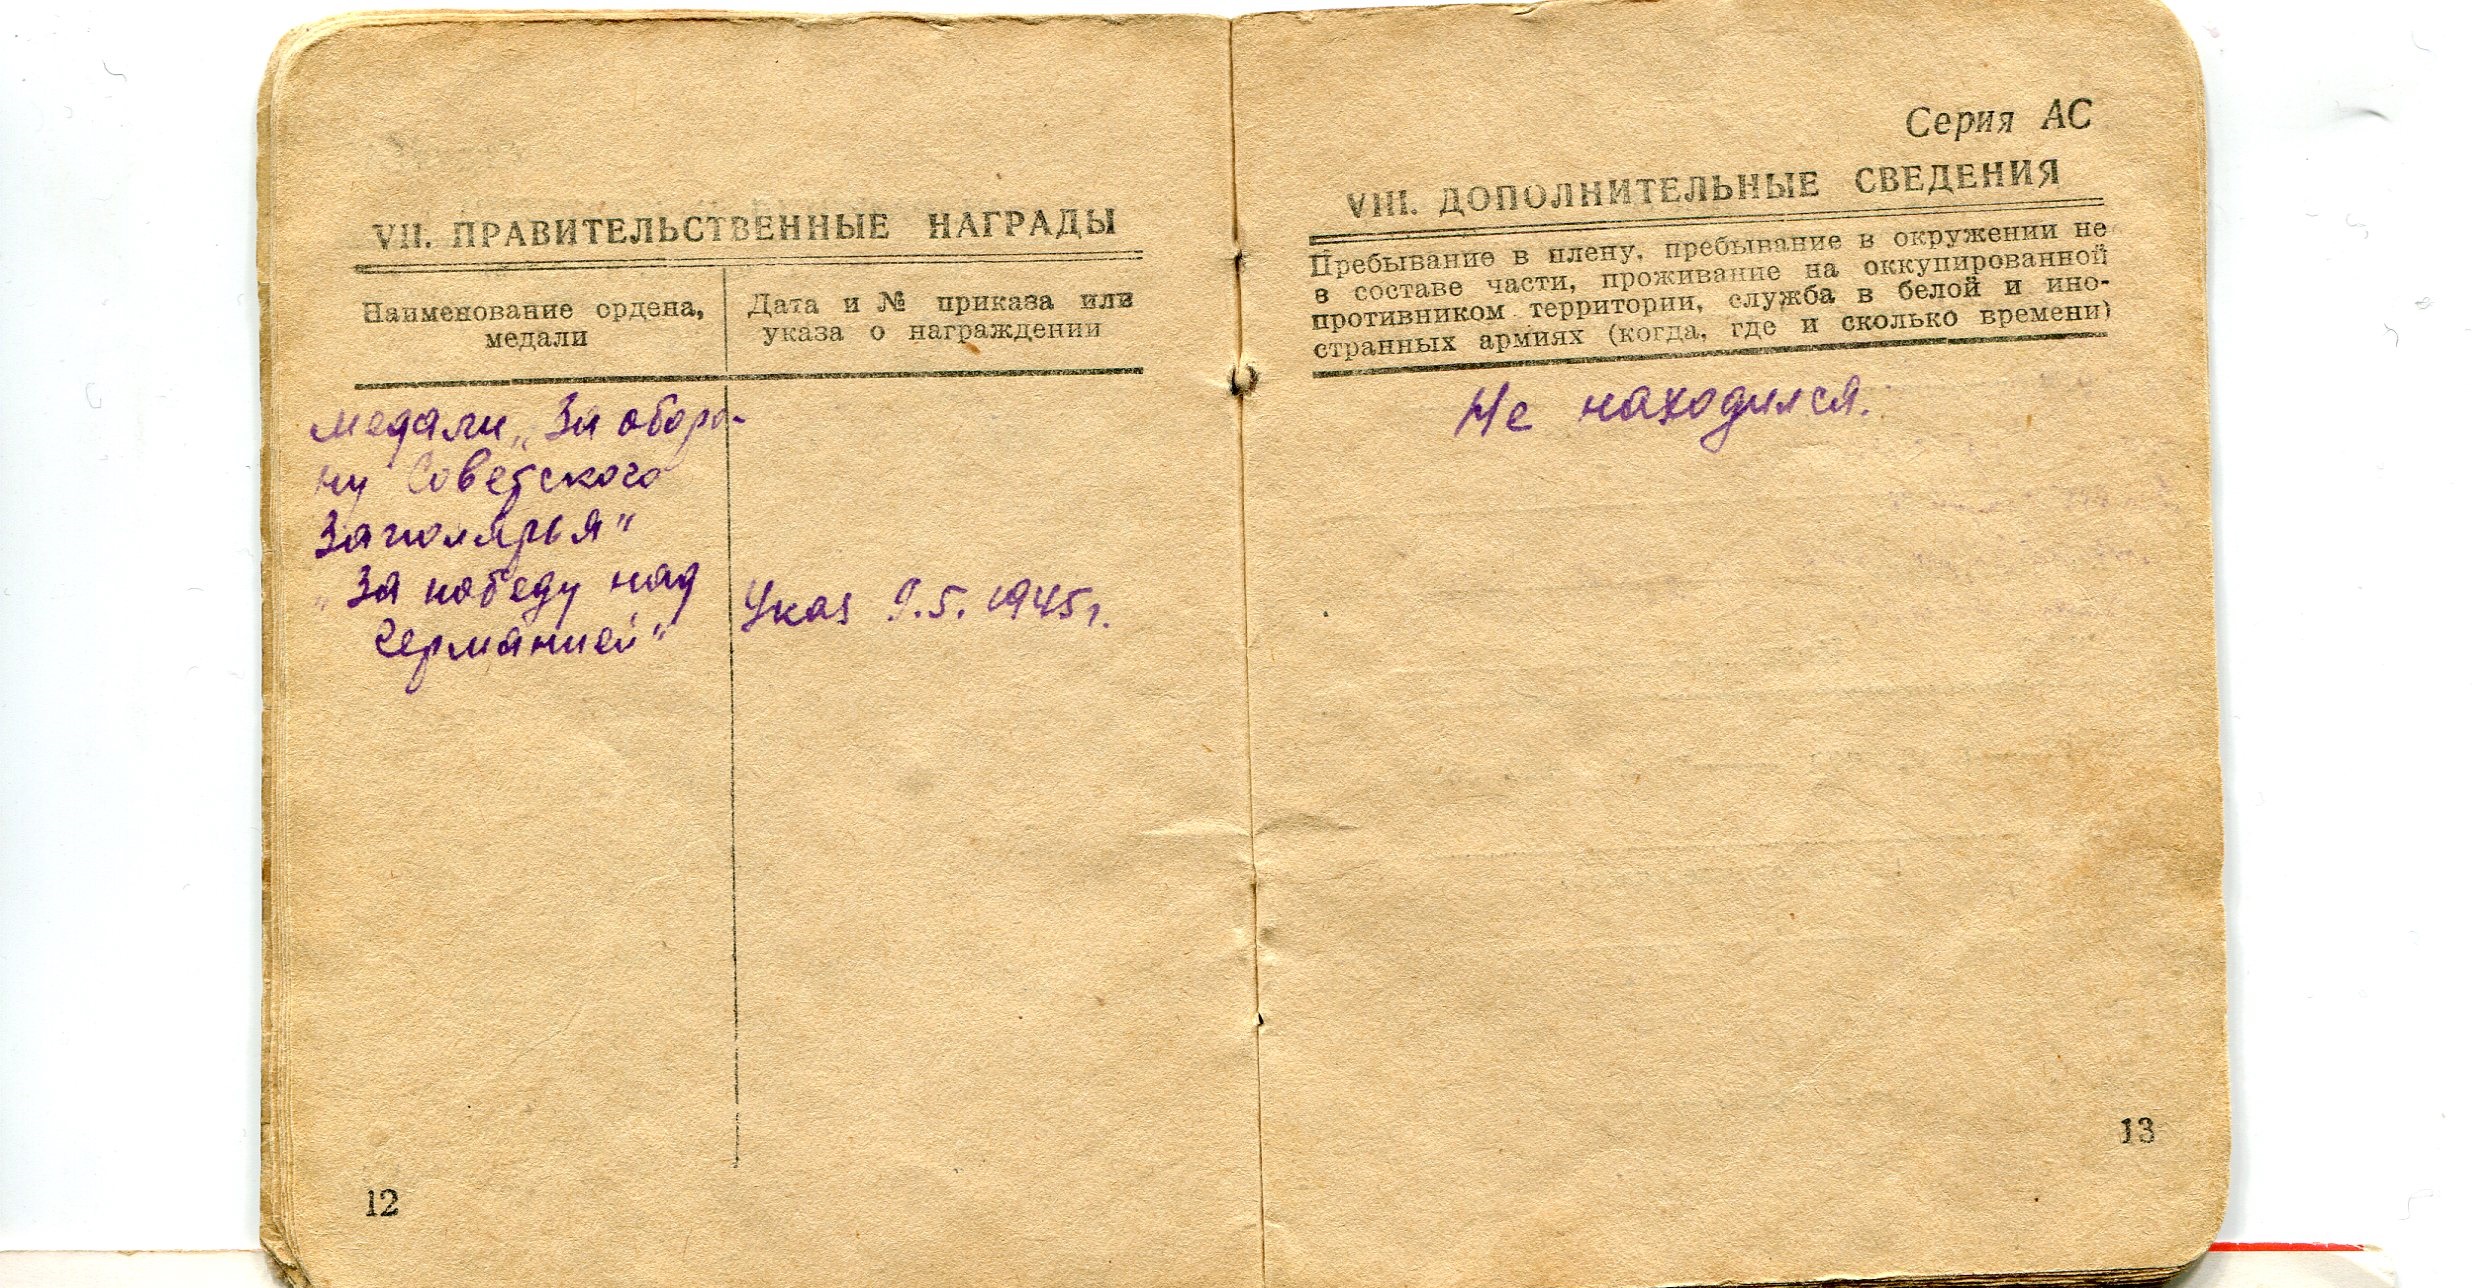 VII. ПРАВИТЕЛЬСТВЕННЫЕ НАГРАДЫ
Наименование ордена,
медали
Дата и № приказа или
указа о награждении
медали „За оборо-
ну Советского
Заполярья"
„За победу над
Германией"
Указ 9.5.1945г.
12
Серия АС
VIII. ДОПОЛНИТЕЛЬНЫЕ СВЕДЕНИЯ
Пребывание в плену, пребывание в окружении не
в составе части, проживание на оккупированной
противником территории, служба в белой и ино-
странных армиях (когда, где и сколько времени)
Не находился.
13